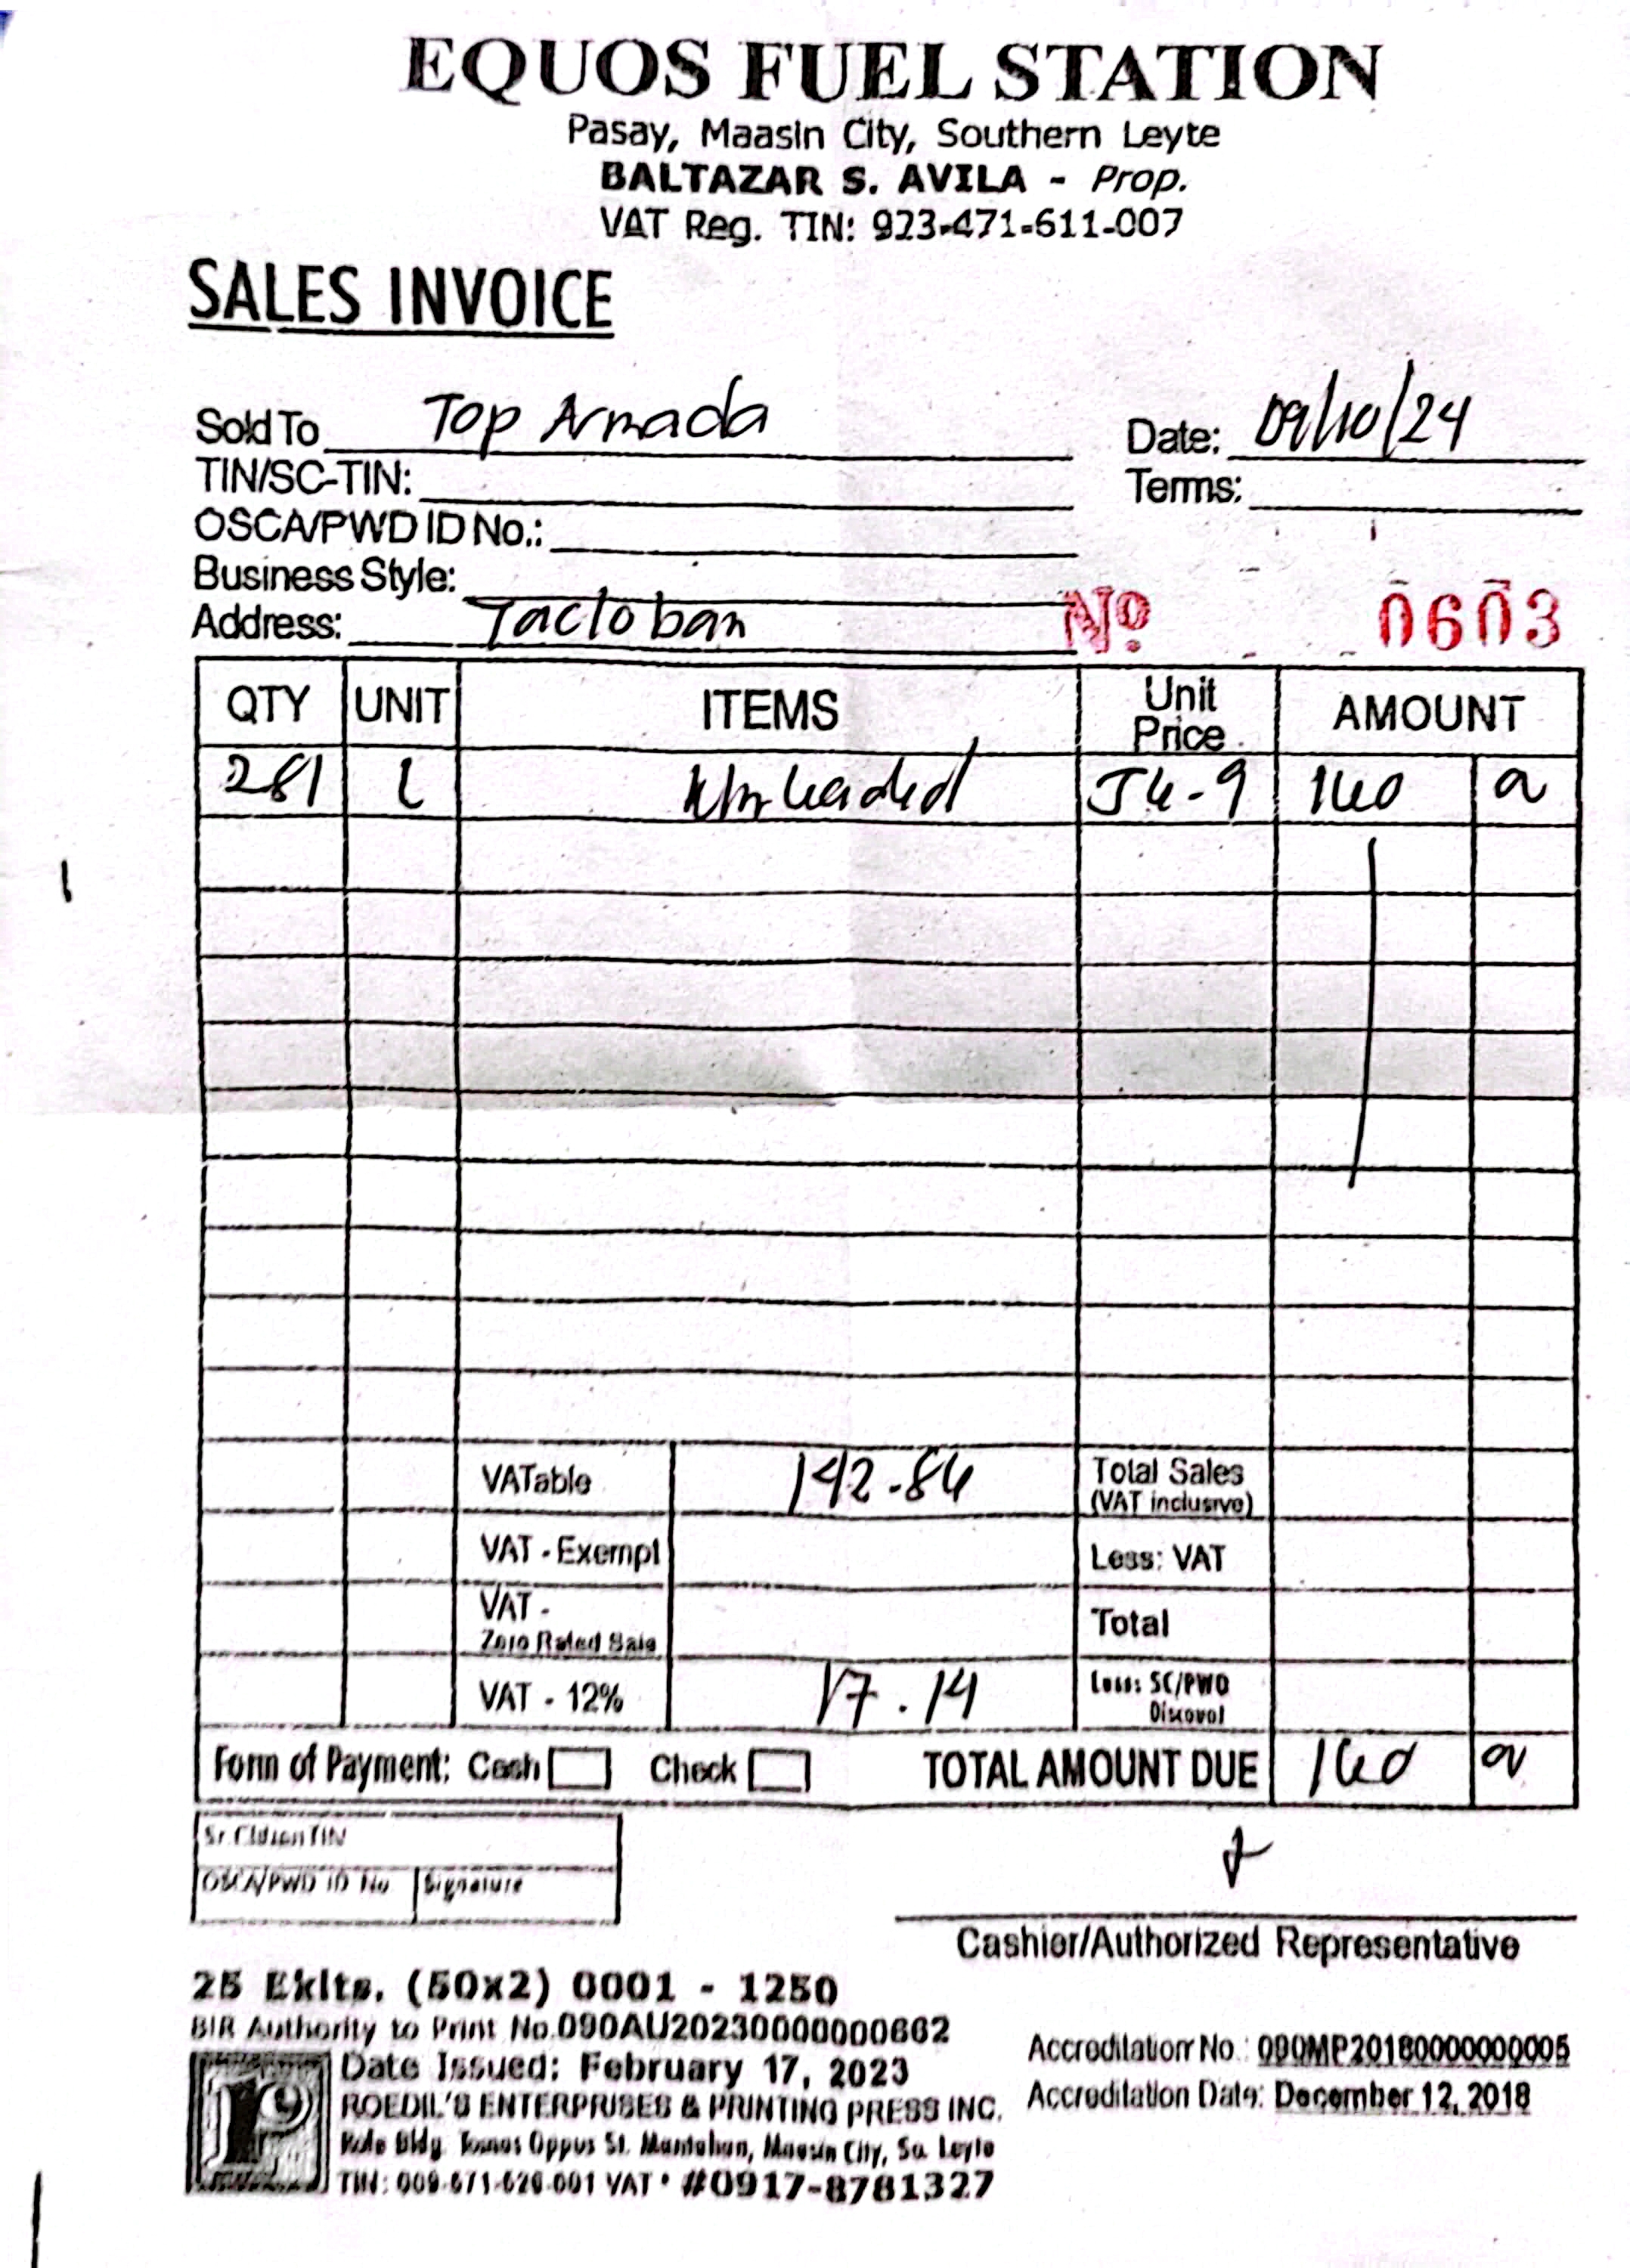 EQUOS FUEL STATION
Pasay, Maasin City, Southern Leyte
BALTAZAR S. AVILA - Prop.
VAT Reg. TIN: 923-471-611-007
SALES INVOICE
Sold To Top Armada Date: 09/10/24
TIN/SC-TIN: Terms:
OSCA/PWD ID No.:
Business Style:
Address: Tacloban Nº 0603
QTY UNIT ITEMS Unit Price AMOUNT
281 L Unleaded 56-9 160
VATable 142.86 Total Sales (VAT inclusive)
VAT - Exempt Less: VAT
VAT - Zero Rated Sale Total
VAT - 12% 17.14 Less: SC/PWD Discount
Form of Payment: Cash Check TOTAL AMOUNT DUE 160
Sr. Citizen TIN
OSCA/PWD ID No Signature
Cashier/Authorized Representative
25 Bklts. (50x2) 0001 - 1250
BIR Authority to Print No. 090AU20230000000662
Accreditation No.: 090MP20180000000005
Date Issued: February 17, 2023
Accreditation Date: December 12, 2018
ROEDIL'S ENTERPRISES & PRINTING PRESS INC.
Bldg. Tomas Oppus St. Mantahan, Maasin City, So. Leyte
TIN: VAT • #0917-8781327